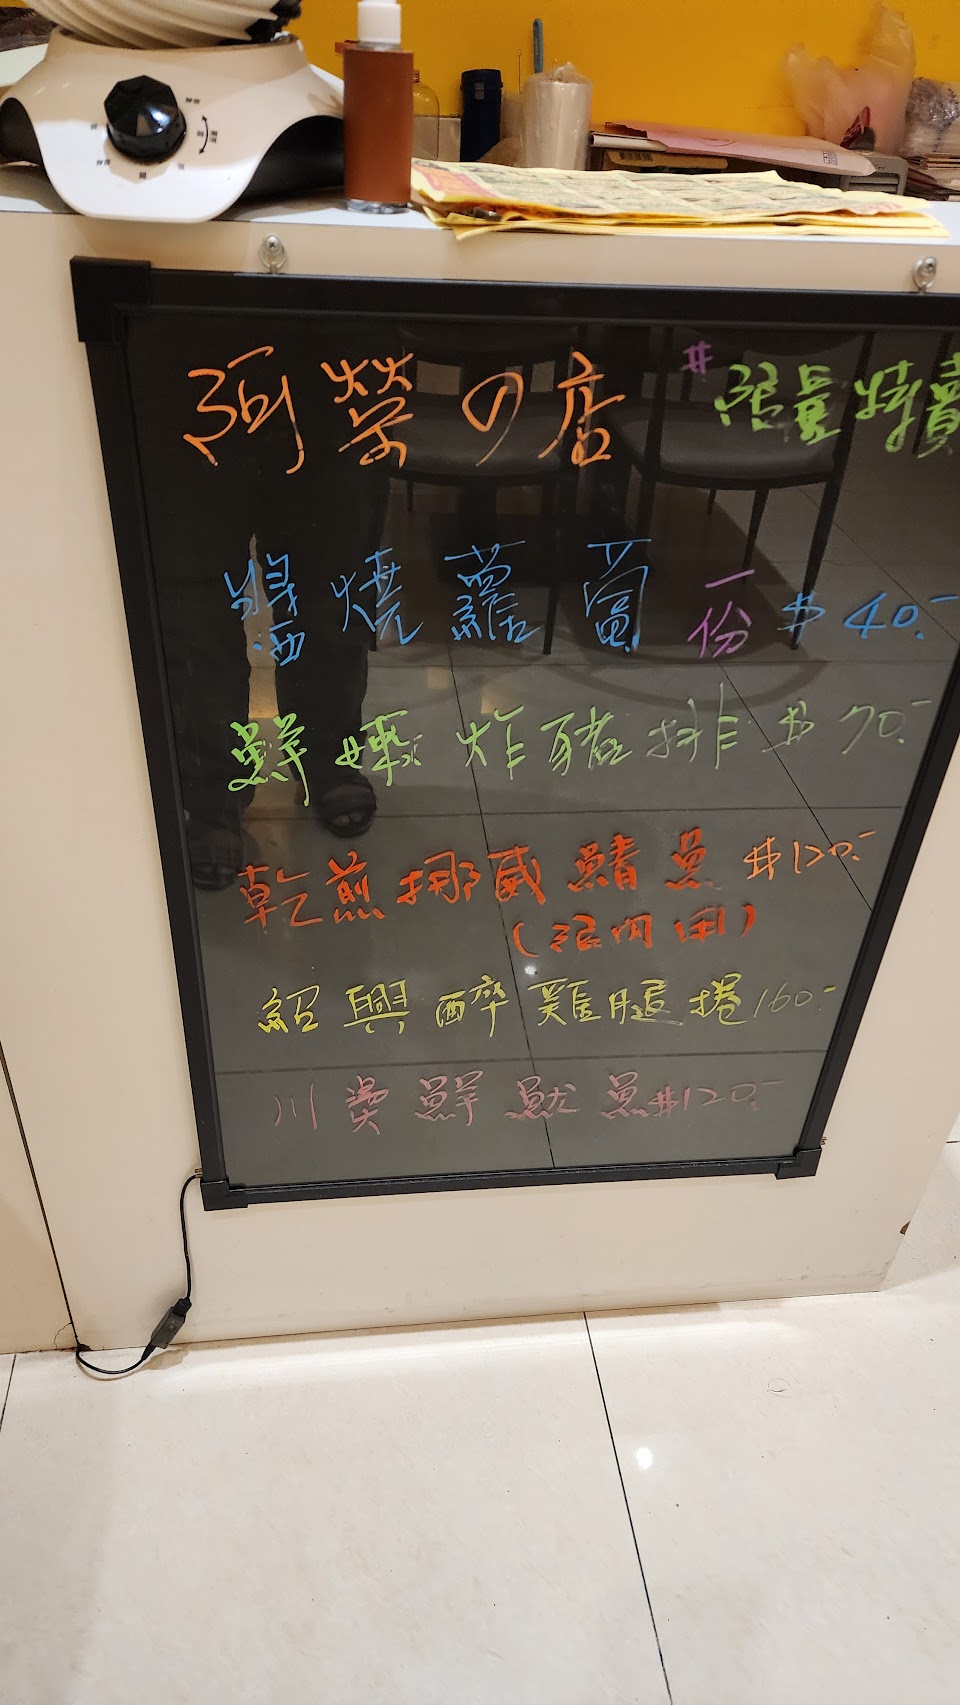 阿榮の店 #限量特賣
醬燒蘿蔔一份 $40.-
鮮嫩炸豬排 $70.-
乾煎挪威鯖魚 $120.-
(限內用)
紹興醉雞腿捲 160.-
川燙鮮魷魚 $120.-